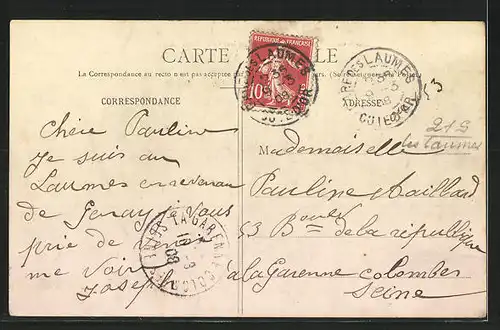 CARTE
La Correspondance au recto n'est pas acceptée
CORRESPONDANCE
ADRESSE
REPUBLIQUE FRANÇAISE
10
LAUMES
COTE-D'OR
LAUMES
COTE D'OR
215
les Laumes
Chère Pauline
je suis au
Laumes en revenan
de Genay je vous
prie de venir
me voir
Joseph
Mademoiselle
Pauline Maillard
53 Bould de la république
à la Garenne colombes
Seine
LA GARENNE-COLOMBES
08